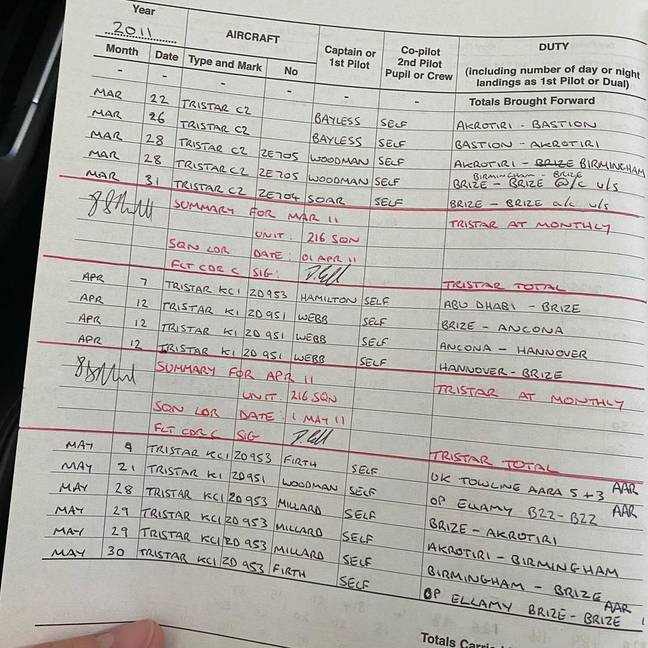 Year
2011
AIRCRAFT
Captain or 1st Pilot
Co-pilot 2nd Pilot Pupil or Crew
DUTY
(including number of day or night landings as 1st Pilot or Dual)
Month Date Type and Mark No
- - - - - - Totals Brought Forward
MAR 22 TRISTAR C2 BAYLESS SELF AKROTIRI - BASTION
MAR 26 TRISTAR C2 BAYLESS SELF BASTION - AKROTIRI
MAR 28 TRISTAR C2 ZE705 WOODMAN SELF AKROTIRI - BRIZE BIRMINGHAM
MAR 28 TRISTAR C2 ZE705 WOODMAN SELF BIRMINGHAM - BRIZE BRIZE - BRIZE a/c u/s
MAR 31 TRISTAR C2 ZE704 SOAR SELF BRIZE - BRIZE a/c u/s
SUMMARY FOR MAR 11 TRISTAR AT MONTHLY
UNIT: 216 SQN
SQN LDR DATE: 01 APR 11
FLT CDR C SIG: TRISTAR TOTAL
APR 7 TRISTAR KC1 ZD953 HAMILTON SELF ABU DHABI - BRIZE
APR 12 TRISTAR K1 ZD951 WEBB SELF BRIZE - ANCONA
APR 12 TRISTAR K1 ZD951 WEBB SELF ANCONA - HANNOVER
APR 12 TRISTAR K1 ZD951 WEBB SELF HANNOVER - BRIZE
SUMMARY FOR APR 11 TRISTAR AT MONTHLY
UNIT 216 SQN
SQN LDR DATE: 1 MAY 11
FLT CDR C SIG TRISTAR TOTAL
MAY 9 TRISTAR KC1 ZD953 FIRTH SELF UK TOWLINE AARA 5+3 AAR
MAY 21 TRISTAR K1 ZD951 WOODMAN SELF OP ELLAMY BZZ-BZZ AAR
MAY 28 TRISTAR KC1 ZD953 MILLARD SELF BRIZE - AKROTIRI
MAY 29 TRISTAR KC1 ZD953 MILLARD SELF AKROTIRI - BIRMINGHAM
MAY 29 TRISTAR KC1 ZD953 MILLARD SELF BIRMINGHAM - BRIZE
MAY 30 TRISTAR KC1 ZD953 FIRTH SELF OP ELLAMY BRIZE - BRIZE AAR
Totals